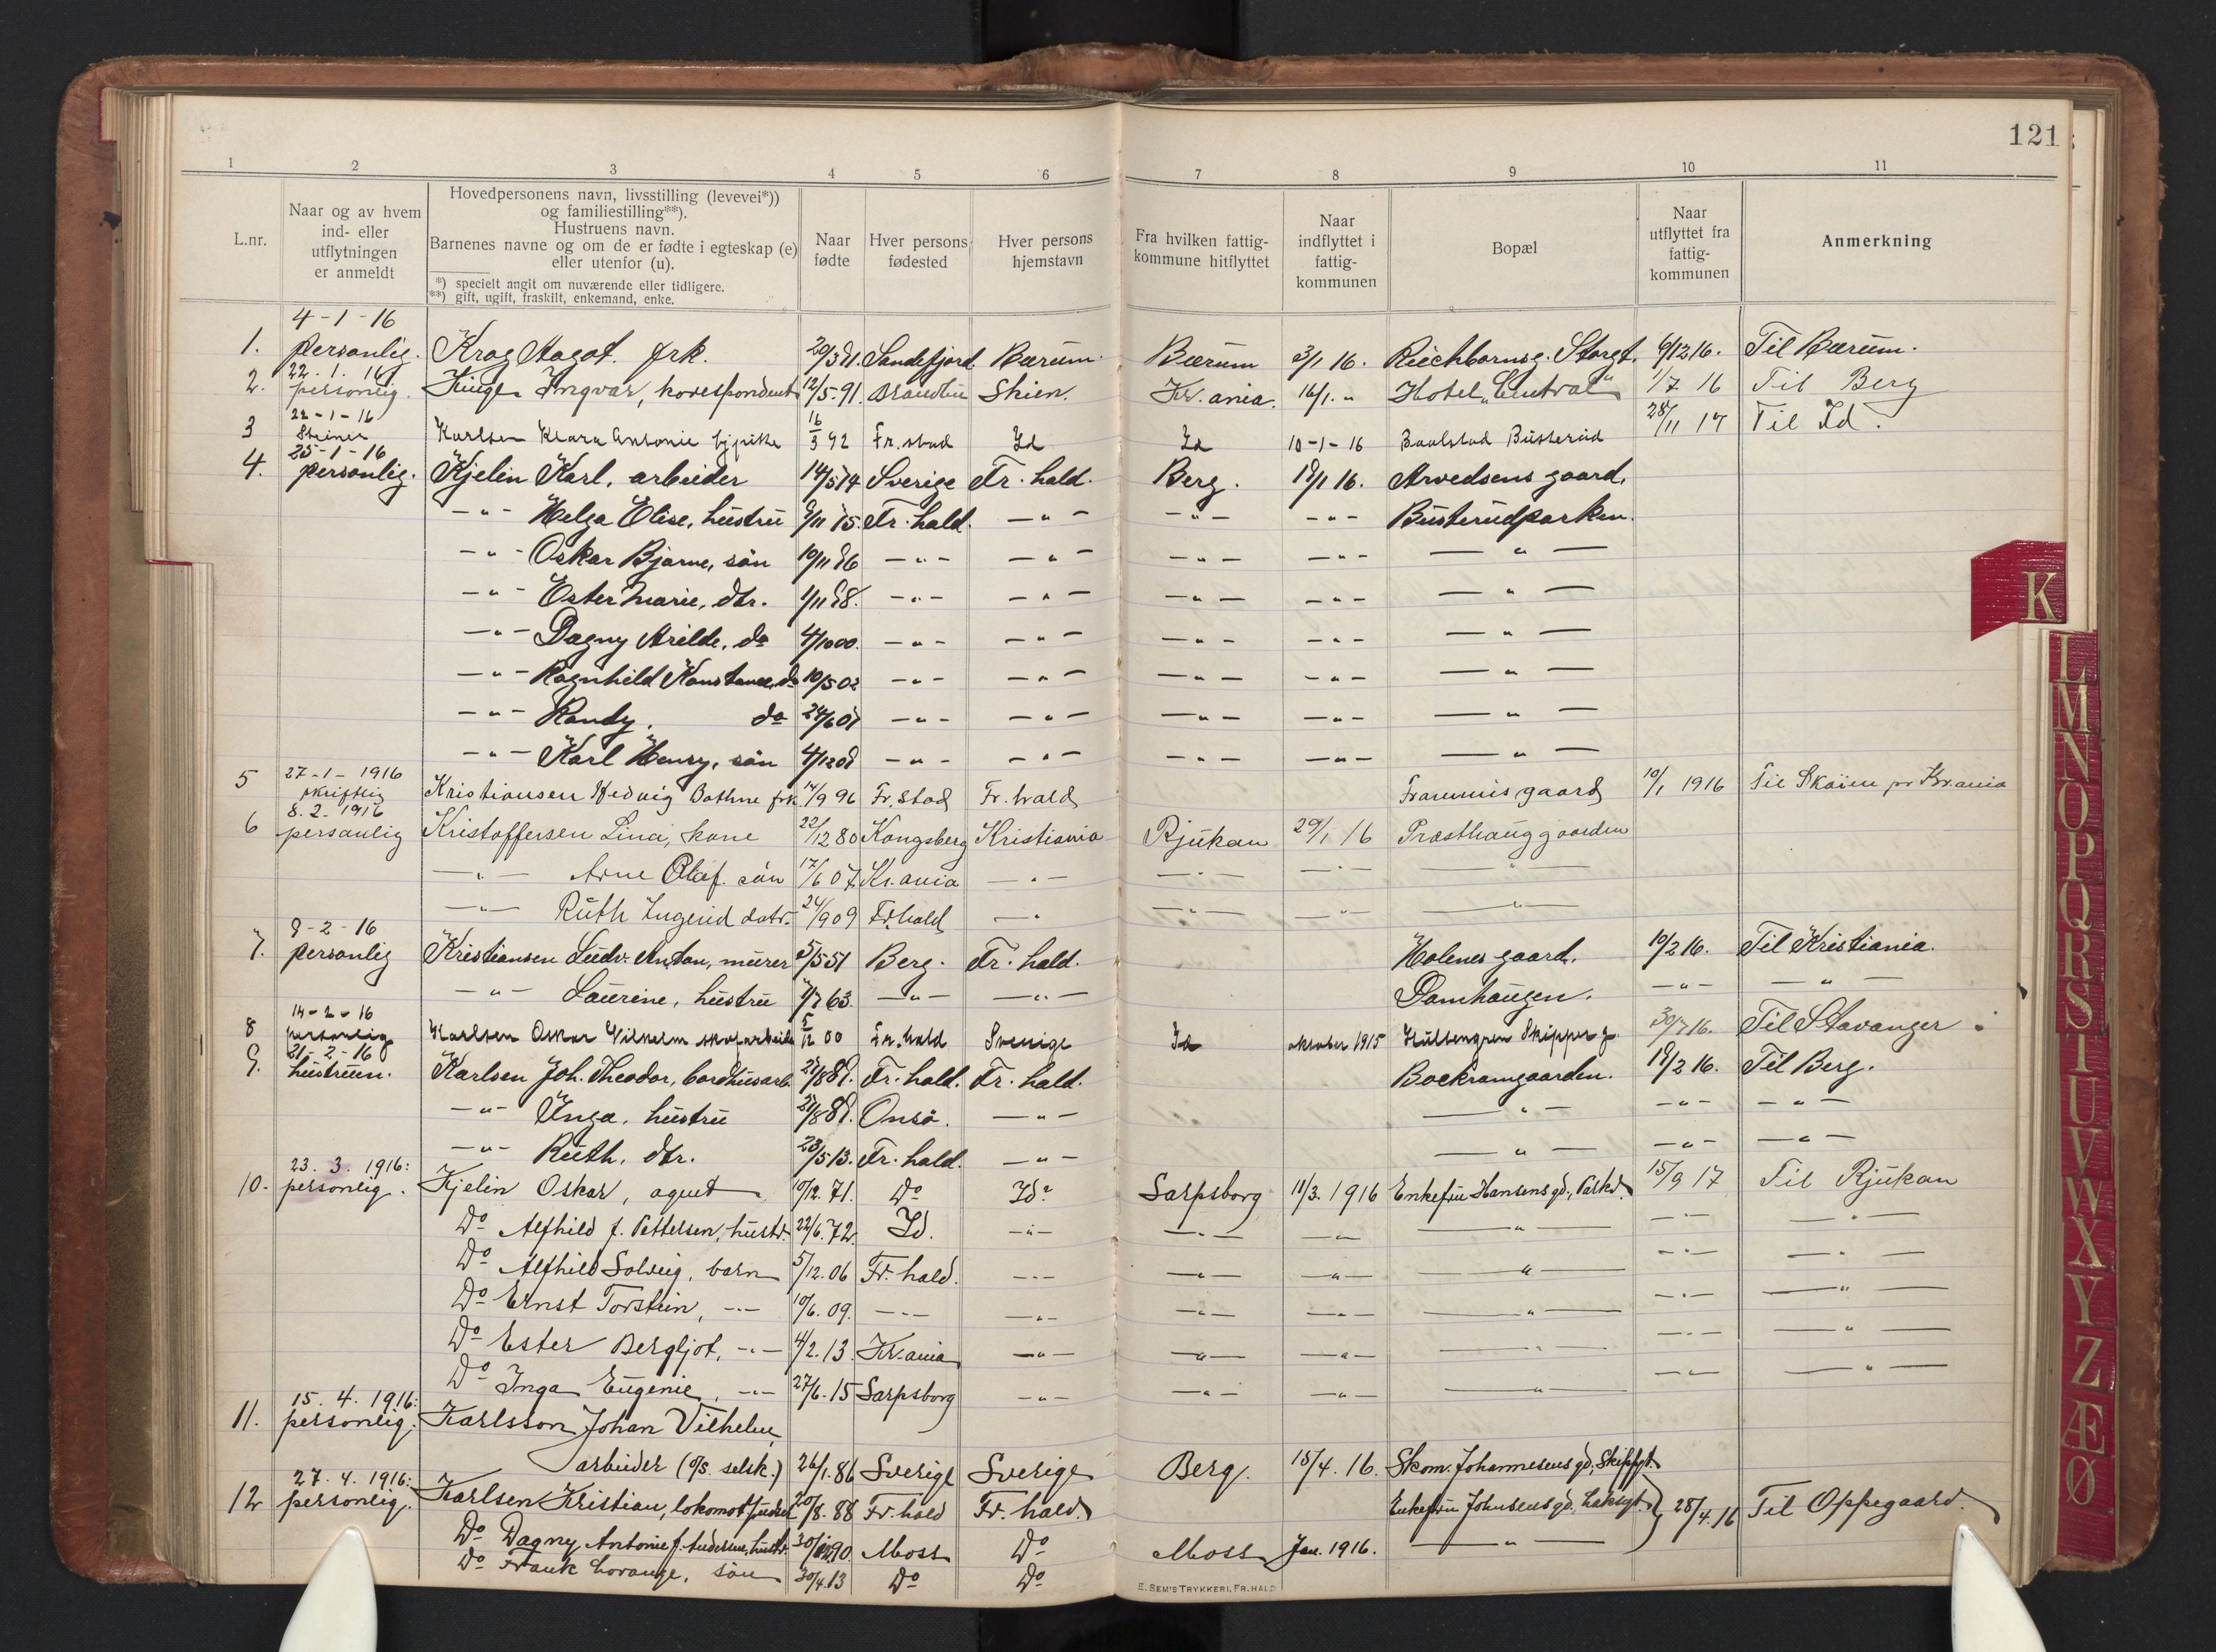 121
1 2 3 4 5 6 7 8 9 10 11
L.nr.
Naar og av hvem
ind- eller
utflytningen
er anmeldt
Hovedpersonens navn, livsstilling (levevei*))
og familiestilling**).
Hustruens navn.
Barnenes navne og om de er fødte i egteskap (e)
eller utenfor (u).
*) specielt angit om nuværende eller tidligere.
**) gift, ugift, fraskilt, enkemand, enke.
Naar
fødte
Hver persons
fødested
Hver persons
hjemstavn
Fra hvilken fattig-
kommune hitflyttet
Naar
indflyttet i
fattig-
kommunen
Bopæl
Naar
utflyttet fra
fattig-
kommunen
Anmerkning
4-1-16
1. personlig. Krog Aagot. frk. Sandefjord Bærum. Bærum 3/1 16. Storgt. 6/12 16. Til Bærum.
22.1.16
2. personlig. Ingvar, korrespondent 12/5-91. Skien. Kr.ania. 16/1. " Hotel "Central" 1/7 16 Til Berg
22-1-16
3 Karlsen Klara Antonie tjpike 16/3 92 Fr.stad Id Id 10-1-16 Busterud 28/11 17 Til Id.
25-1-16
4. personlig. Kjelin Karl, arbeider 14/5 74 Sverige Fr.hald. Berg. 18/1 16. Arvedsens gaard,
-"- Helga Elise, hustru 8/11 75. Fr.hald. -"- -"- -"- Busterudparken.
-"- Oskar Bjarne, sön 10/11 96 -"- -"- -"- -"- -"-
-"- Ester Marie, dtr. 1/11 98. -"- -"- -"- -"- -"-
-"- Dagny Arilde, do 4/10 00. -"- -"- -"- -"- -"-
-"- Ragnhild Konstance, do 10/5 02 -"- -"- -"- -"- -"-
-"- Randy. do 24/6 -"- -"- -"- -"- -"-
-"- Karl Henry, sön 4/12 08 -"- -"- -"- -"- -"-
27-1-1916
5 skriftlig Kristiansen Hedvig Bathne frk. 14/9 96 Fr.stad Fr.hald gaard 10/1 1916 Til Skøien pr Kr.ania
8.2.1916
6 personlig Kristoffersen Lina, kone 22/12 80 Kongsberg Kristiania Rjukan 29/1 16 Præsthauggaarden
-"- Arne Olaf. sön 17/6 07 Kr.ania -"- -"- -"- -"-
-"- Ruth Ingerid datr. 24/9 09 Fr.hald -"- -"- -"- -"-
8-2-16
7. personlig Kristiansen Ludv. Anton, murer 5/5 51 Berg. Fr.hald. Holenes gaard. 10/2 16. Til Kristiania.
-"- Laurine, hustru 7/7 63. -"- -"- Damhaugen. -"- -"-
14-2-16
8 personlig Karlsen Oskar Vilhelm skofarbeider 5/12 00 Fr.hald Sverige Id oktober 1915 Hultengren Skipperg. 30/7 16. Til Stavanger.
21-2-16
9. hustruen. Karlsen Joh. Theodor, Fr.hald. Fr.hald. Bockramgaarden. 18/2 16. Til Berg.
-"- Inga, hustru Onsö. -"- -"- -"- -"-
-"- Ruth, dtr. 23/5 13. Fr.hald. -"- -"- -"- -"-
23.3.1916:
10. personlig. Kjelin Oskar, agent 10/12. 71. Do Id. Sarpsborg 11/3. 1916 Enkefru Hansens gd., Parkv. 15/9 17 Til Rjukan
Do Alfhild f. Pettersen, hustr. 22/6. 72. Id. -"- -"- -"- -"- -"- -"-
Do Alfhild Solveig, barn 5/12. 06 Fr.hald. -"- -"- -"- -"- -"- -"-
Do Ernst Torstein, -"- 10/6. 09. -"- -"- -"- -"- -"- -"- -"-
Do Ester Bergljot, -"- 4/2. 13. Kr.ania -"- -"- -"- -"- -"- -"-
Do Inga Eugenie, -"- 27/6. 15 Sarpsborg -"- -"- -"- -"- -"- -"-
15.4.1916:
11. personlig. Karlsson Johan Vilhelm,
arbeider (o/s. selsk.) 26/1. 86 Sverige Sverige Berg. 15/4. 16. Skom. Johannesens gd., Skippgt.
27.4.1916:
12 personlig. Karlsen Kristian, lokomotpudser 20/8. 88 Fr.hald Fr.hald. Enkefru Johnsens gd. Laksgt. 28/4. 16 Til Oppegaard.
Do Dagny Antonie f. Andersen, hustr. Moss Do Moss Jan. 1916. -"-
Do Frank Lorange, sön 30/4. 13 Do Do
E. SEM'S TRYKKERI, FR.HALD
K
L
M
N
O
P
Q
R
S
T
U
V
W
X
Y
Z
Æ
Ø